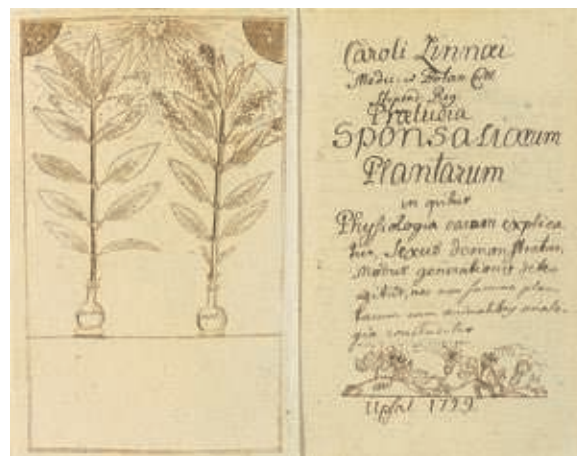 Caroli Linnæi
Medic. & Botan. Cult.
Stipend. Reg.
Præludia
Sponsaliorum
Plantarum
in quibus
Physiologia earum explica
tur, Sexus demonstratur,
modus generationis dete-
gitur, nec non summa plan-
tarum cum animalibus analo-
gia concluditur
Upsal 1729